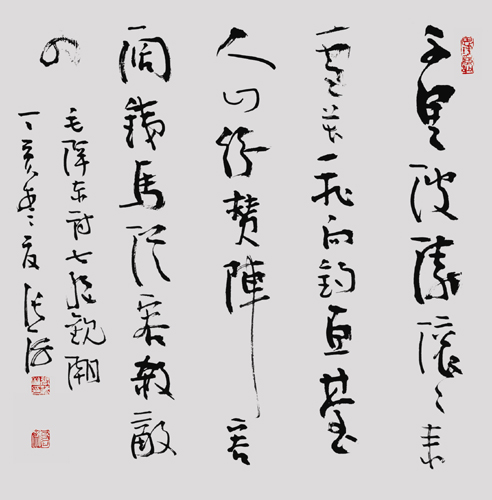 千里波濤滚々来
雪花飛向釣魚臺
人山紛贊陣容
阔鐵馬從容殺敵
回
毛澤东詩七绝觀潮
丁亥